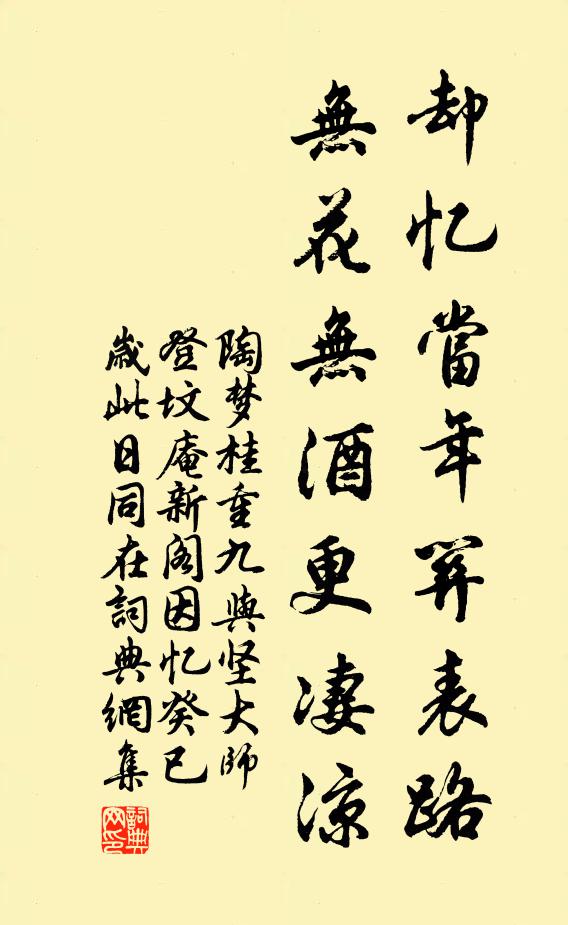 却忆當年笄表路
無花無酒更凄凉
陶梦桂重九與坚大师
登坟庵新阁因忆癸巳
岁此日同在詞典網集
詞典
网印